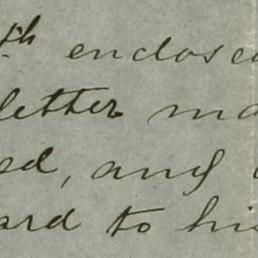 th enclose
letter ma
ed, and
ard to his